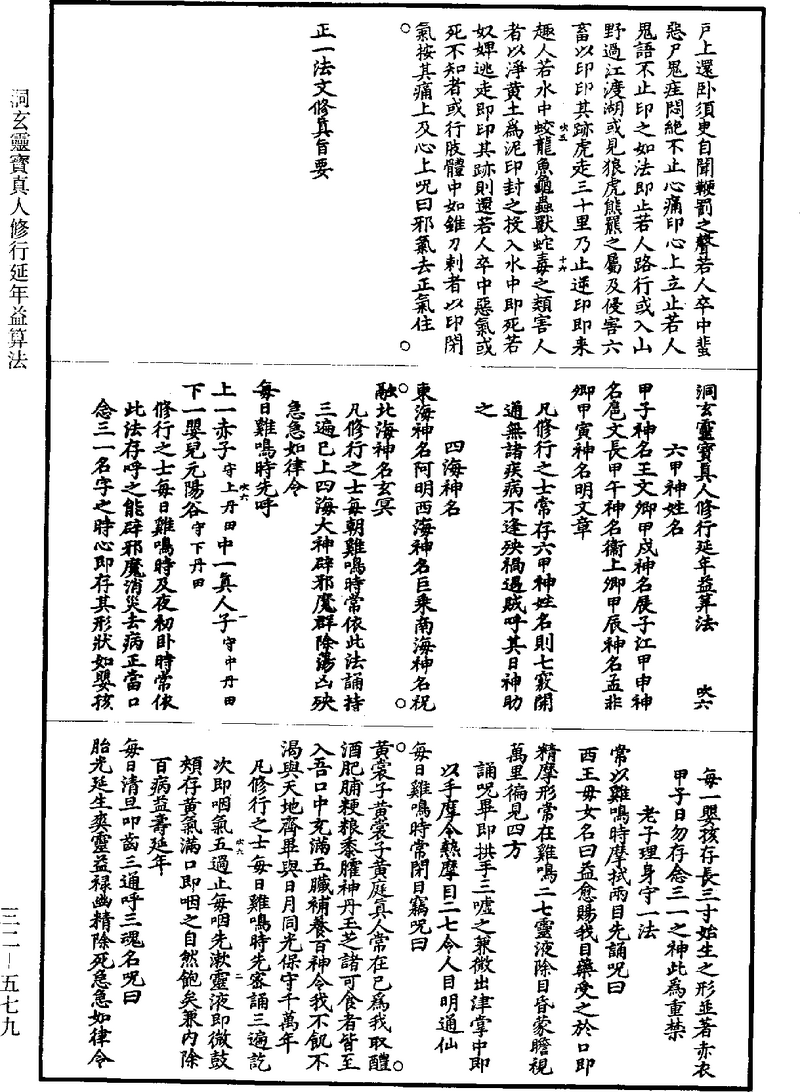 戶上還卧須臾自聞鞭罰之聲若人卒中蜚
惡尸鬼疰悶絶不止心痛印心上立止若人
鬼語不止印之如法即止若人路行或入山
野過江渡湖或見狼虎熊羆之屬及侵害六
畜以印印其跡虎走三十里乃止逆印即来
趣人若水中蛟龍魚龜蟲獸蛇毒之類害人
者以淨黄土爲泥印封之投入水中即死若
奴婢逃走即印其跡則還若人卒中惡氣或
死不知者或行肢體中如錐刀刺者以印閉
氣按其痛上及心上呪曰邪氣去正氣住
正一法文修真旨要
吹五
十六
洞玄靈寶真人修行延年益算法
吹六
六甲神姓名
甲子神名王文卿甲戌神名展子江甲申神
名扈文長甲午神名衞上卿甲辰神名孟非
卿甲寅神名明文章
凡修行之士常存六甲神姓名則七竅開
通無諸疾病不逢殃禍遇賊呼其日神助
之
四海神名
東海神名阿明西海神名巨乘南海神名祝
融北海神名玄冥
凡修行之士每朝雞鳴時常依此法誦持
三遍已上四海大神辟邪魔群除蕩凶殃
急急如律令
每日雞鳴時先呼
吹六
一
上一赤子守上丹田中一真人子守中丹田
下一嬰兒元陽谷守下丹田
修行之士每日雞鳴時及夜初卧時常依
此法存呼之能辟邪魔消災去病正當口
念三一名字之時心即存其形狀如嬰孩
每一嬰孩存長三寸始生之形並著赤衣
甲子日勿存念三一之神此爲重禁
老子理身守一法
常以雞鳴時摩拭兩目先誦呪曰
西王母女名曰益愈賜我目藥受之於口即
精摩形常在雞鳴二七靈液除目昏蒙瞻視
萬里徧見四方
誦呪畢即拱手三噓之兼微出津掌中即
以手摩令熱摩目二七令人目明通仙
每日雞鳴時常閉目竊呪曰
黄裳子黄裳子黄庭真人常在己爲我取醴
酒肥脯粳粮黍臛神丹玉芝諸可食者皆至
入吾口中充滿五臟補養百神令我不飢不
渴與天地齊畢與日月同光保守千萬年
凡修行之士每日雞鳴時先密誦三遍訖
吹六
二
次即咽氣五過止每咽先漱靈液即微鼓
頰存黄氣滿口即咽之自然飽矣兼内除
百病益壽延年
每日清旦叩齒三通呼三魂名呪曰
胎光延生爽靈益禄幽精除死急急如律令
洞玄靈寶真人修行延年益算法
三二—五七九